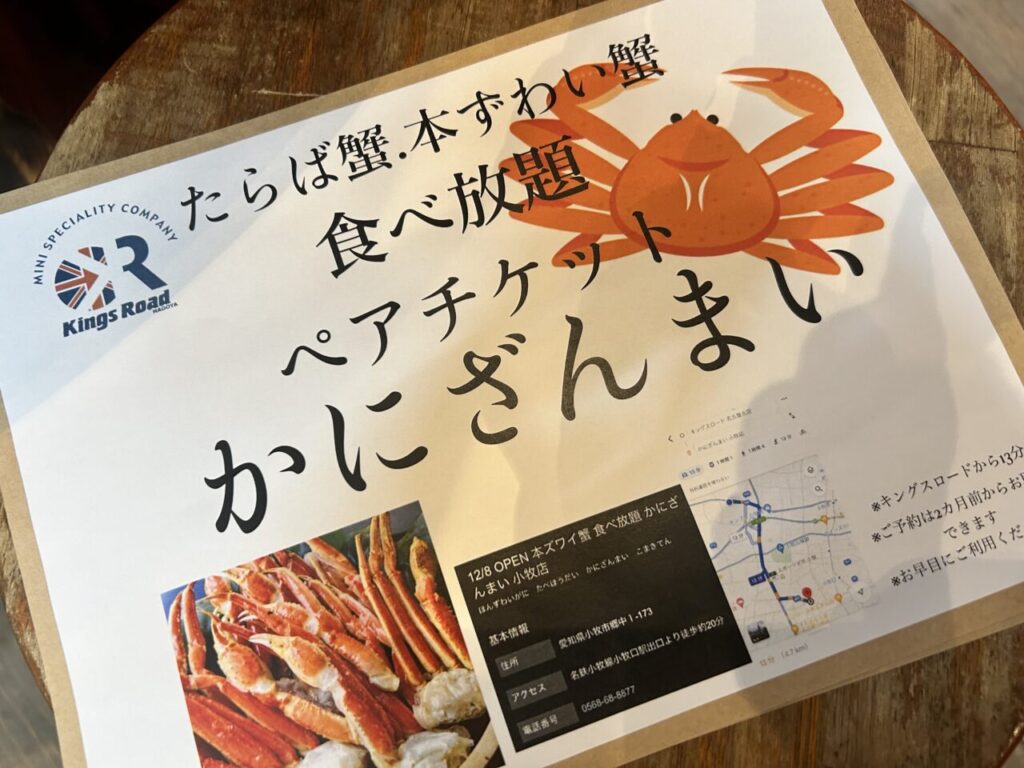 MINI SPECIALITY COMPANY
R
Kings Road
NAGOYA
たらば蟹.本ずわい蟹
食べ放題
ペアチケット
かにざんまい
12/8 OPEN 本ズワイ蟹 食べ放題 かにざ
んまい 小牧店
ほんずわいがに たべほうだい かにざんまい こまきてん
基本情報
住所 愛知県小牧市郷中1-173
アクセス 名鉄小牧線小牧口駅出口より徒歩約20分
電話番号 0568-68-8877
キングスロード 名古屋北店
かにざんまい 小牧店
13分 (4.7 km)
※キングスロードから13分
※ご予約は2カ月前からお
できます
※お早目にご利用くだ